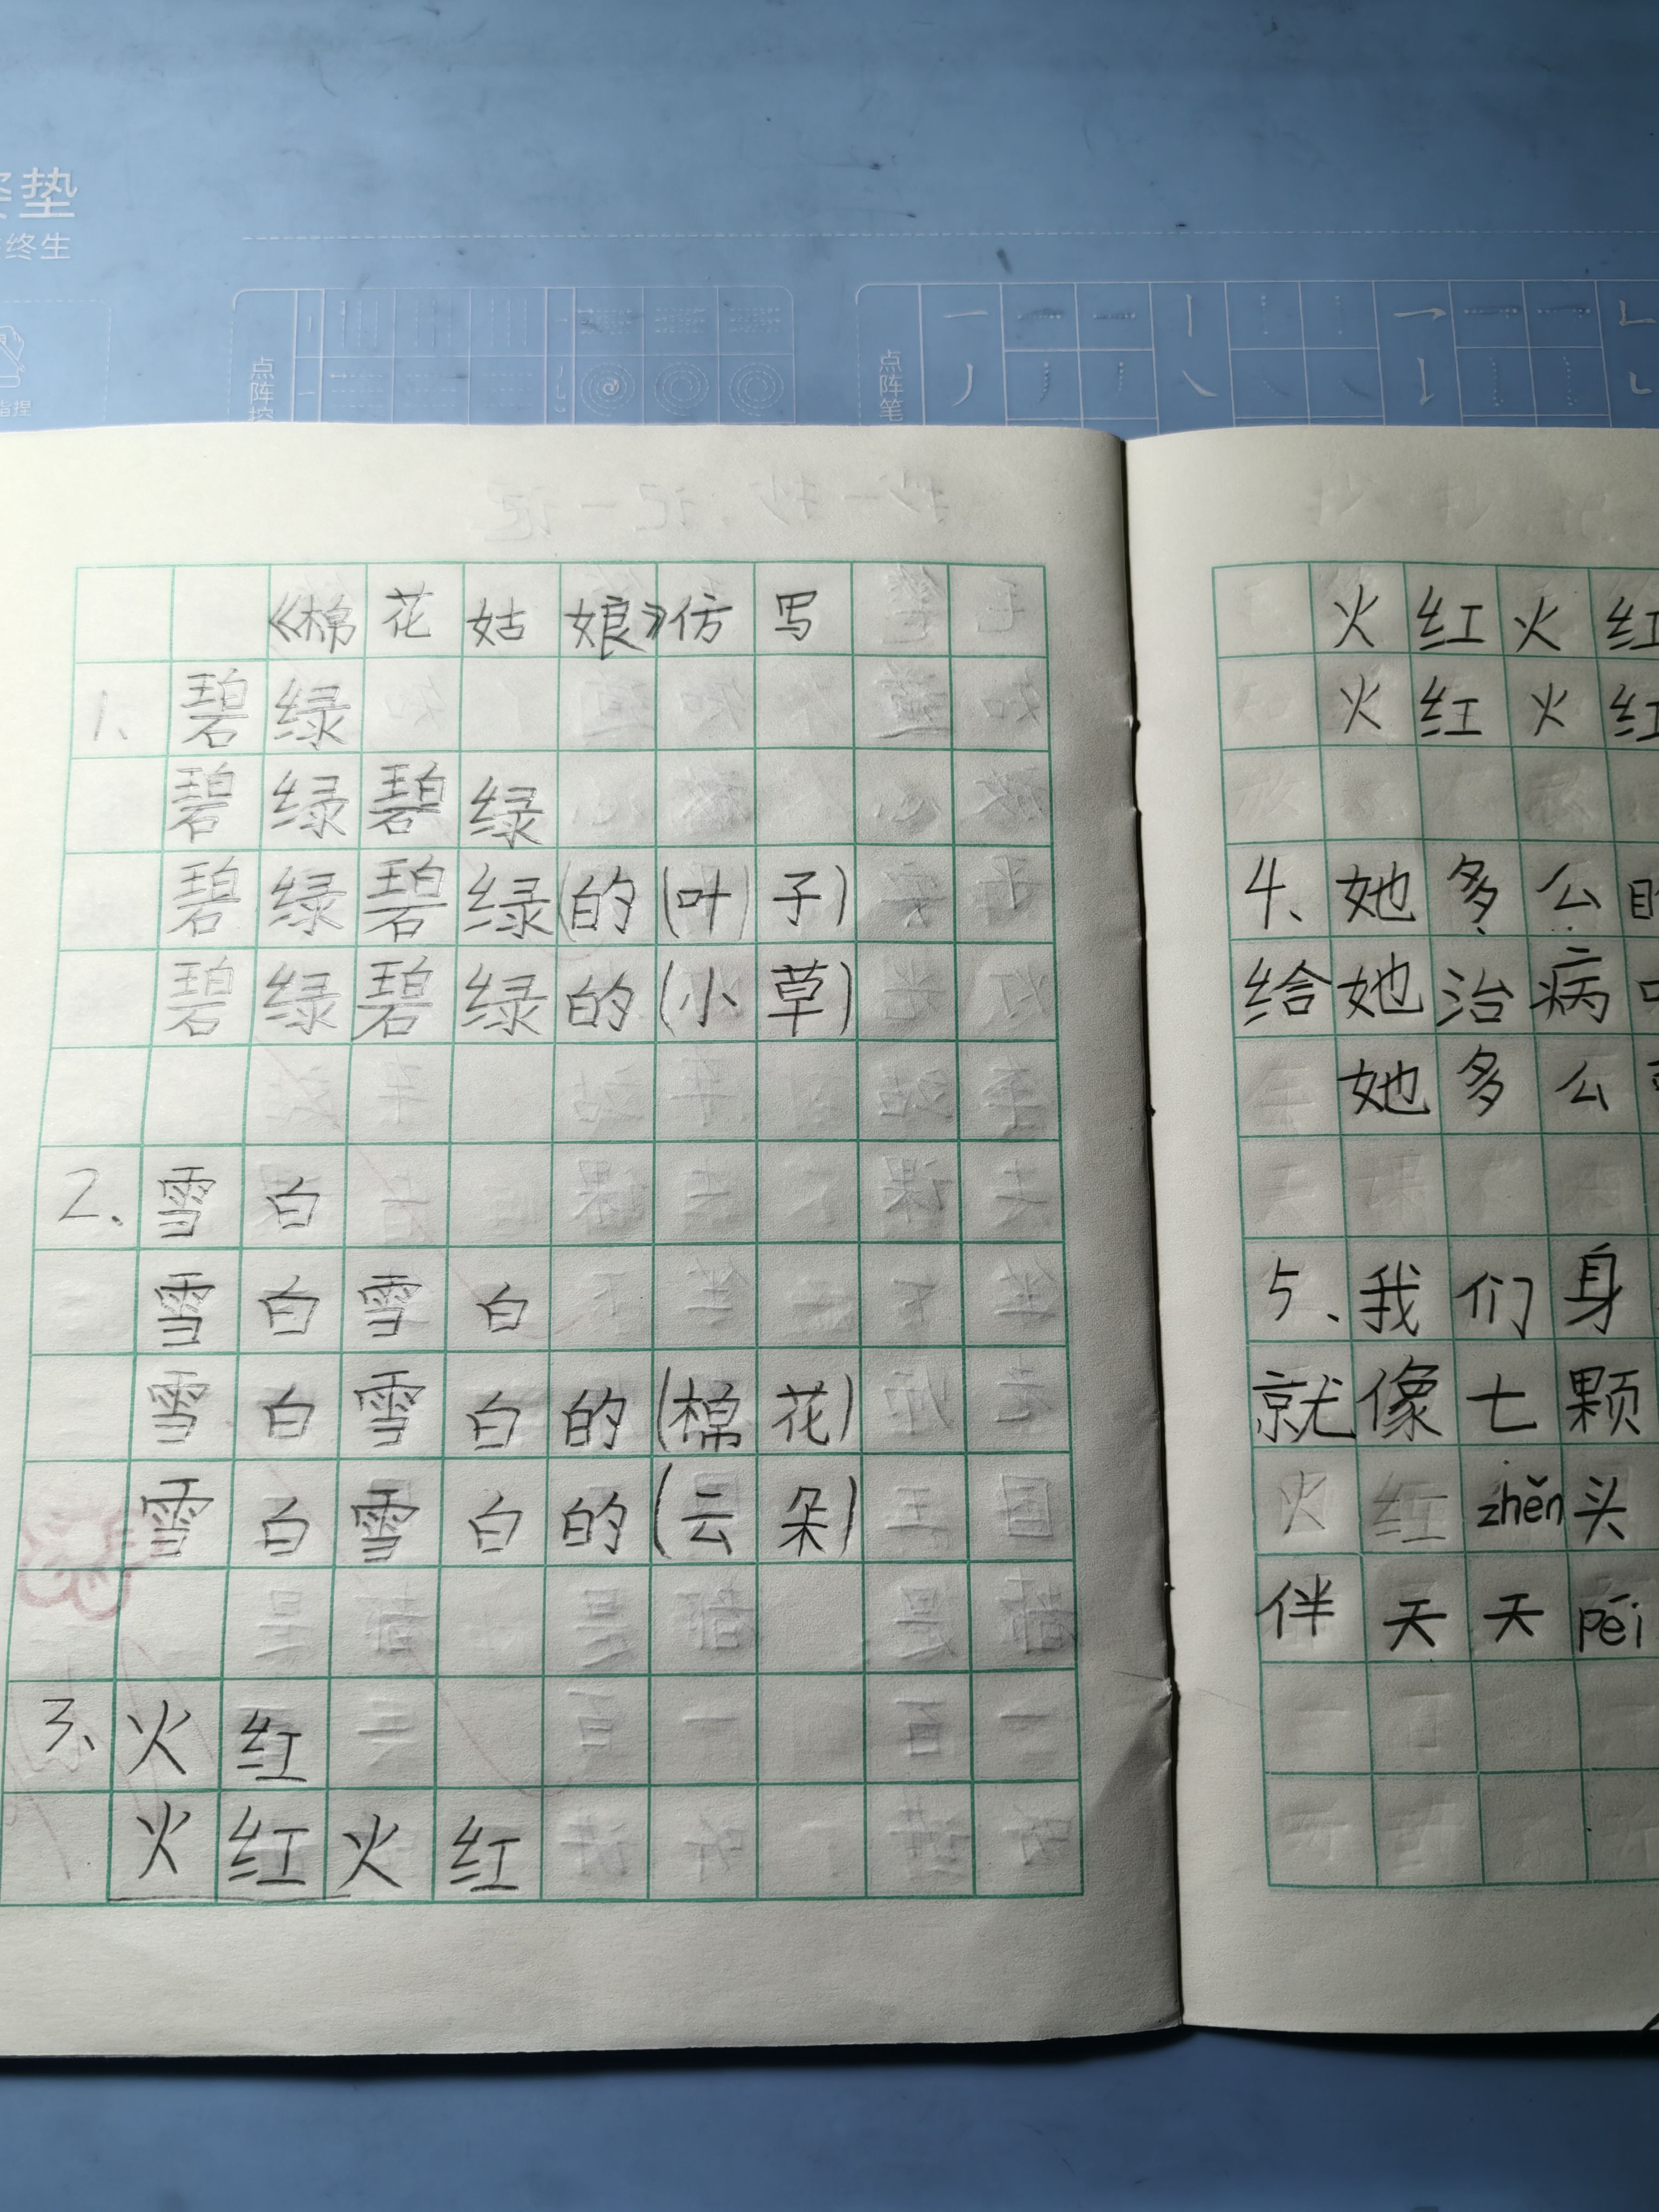 垫
终生
指捏
点阵控
点阵笔
《棉花姑娘》仿写
1、碧绿
碧绿碧绿
碧绿碧绿的(叶子)
碧绿碧绿的(小草)
2、雪白
雪白雪白
雪白雪白的(棉花)
雪白雪白的(云朵)
3、火红
火红火红
火红火红
火红火红
4、她多么
给她治病
她多么
5、我们身
就像七颗
火红zhěn头
伴天天péi